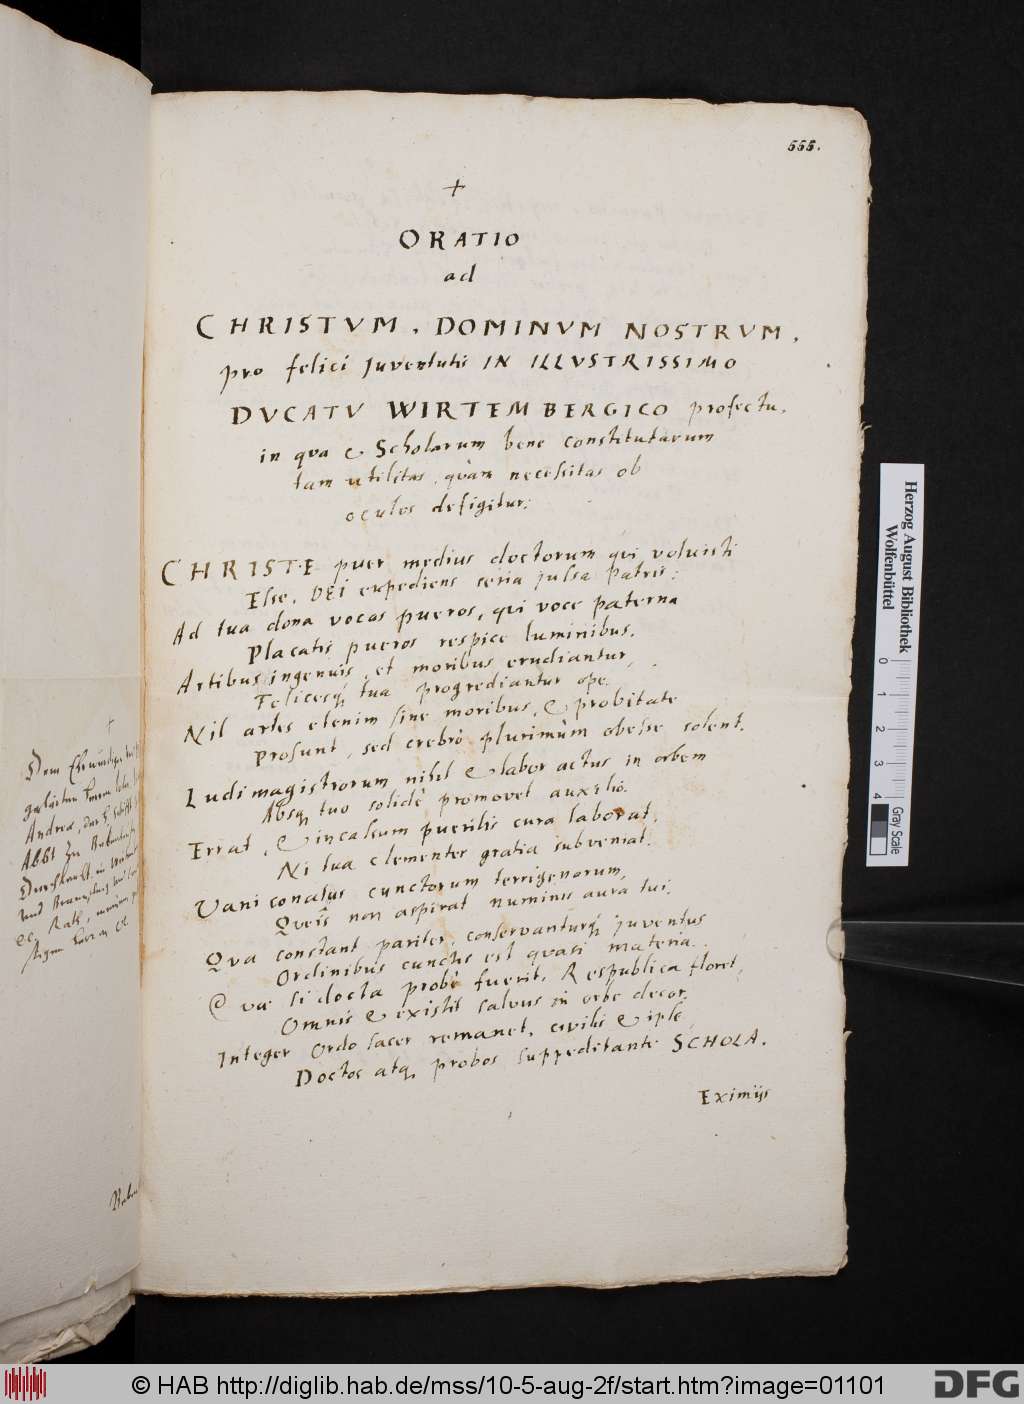 555.
+
ORATIO
ad
CHRISTVM, DOMINVM NOSTRVM,
pro felici Juventutis IN ILLVSTRISSIMO
DVCATV WIRTEMBERGICO profectu,
in qua & Scholarum bene constitutarum
tam utilitas, quàm necessitas ob
oculos defigitur:
CHRISTE puer medius doctorum qui voluisti
Esse, DEI expediens seria jussa Patris:
Ad tua dona vocas pueros, qui voce paterna
Placatis pueros respice luminibus.
Artibus ingenuis, et moribus erudiantur,
Felicesq́ tua progrediantur ope.
Nil artes etenim sine moribus, & probitate
Prosunt, sed crebrò plurimùm obesse solent.
Ludimagistrorum nihil & labor actus in orbem
Absq tuo solidè promovet auxilio.
Errat, & incassum puerilis cura laborat,
Ni tua clementer gratia subveniat.
Vani conatus cunctorum terrigenorum,
Queîs non aspirat numinis aura tui:
Qua constant pariter, conservanturq́ juventus
Ordinibus cunctis est quasi materia.
Quæ si docta probè fuerit, Respublica floret,
Omnis & existit salvus in orbe decor.
Integer Ordo sacer remanet, civilis & ipse,
Doctos atq probos suppeditante SCHOLA.
Eximijs
+
Andreæ, der H. Schrifft
Abbt zu
und Braunschweig
ec. Rath, meinem
ec.
Herzog August Bibliothek
Wolfenbüttel
0 1 2 3 4
Gray Scale
© HAB http://diglib.hab.de/mss/10-5-aug-2f/start.htm?image=01101
DFG